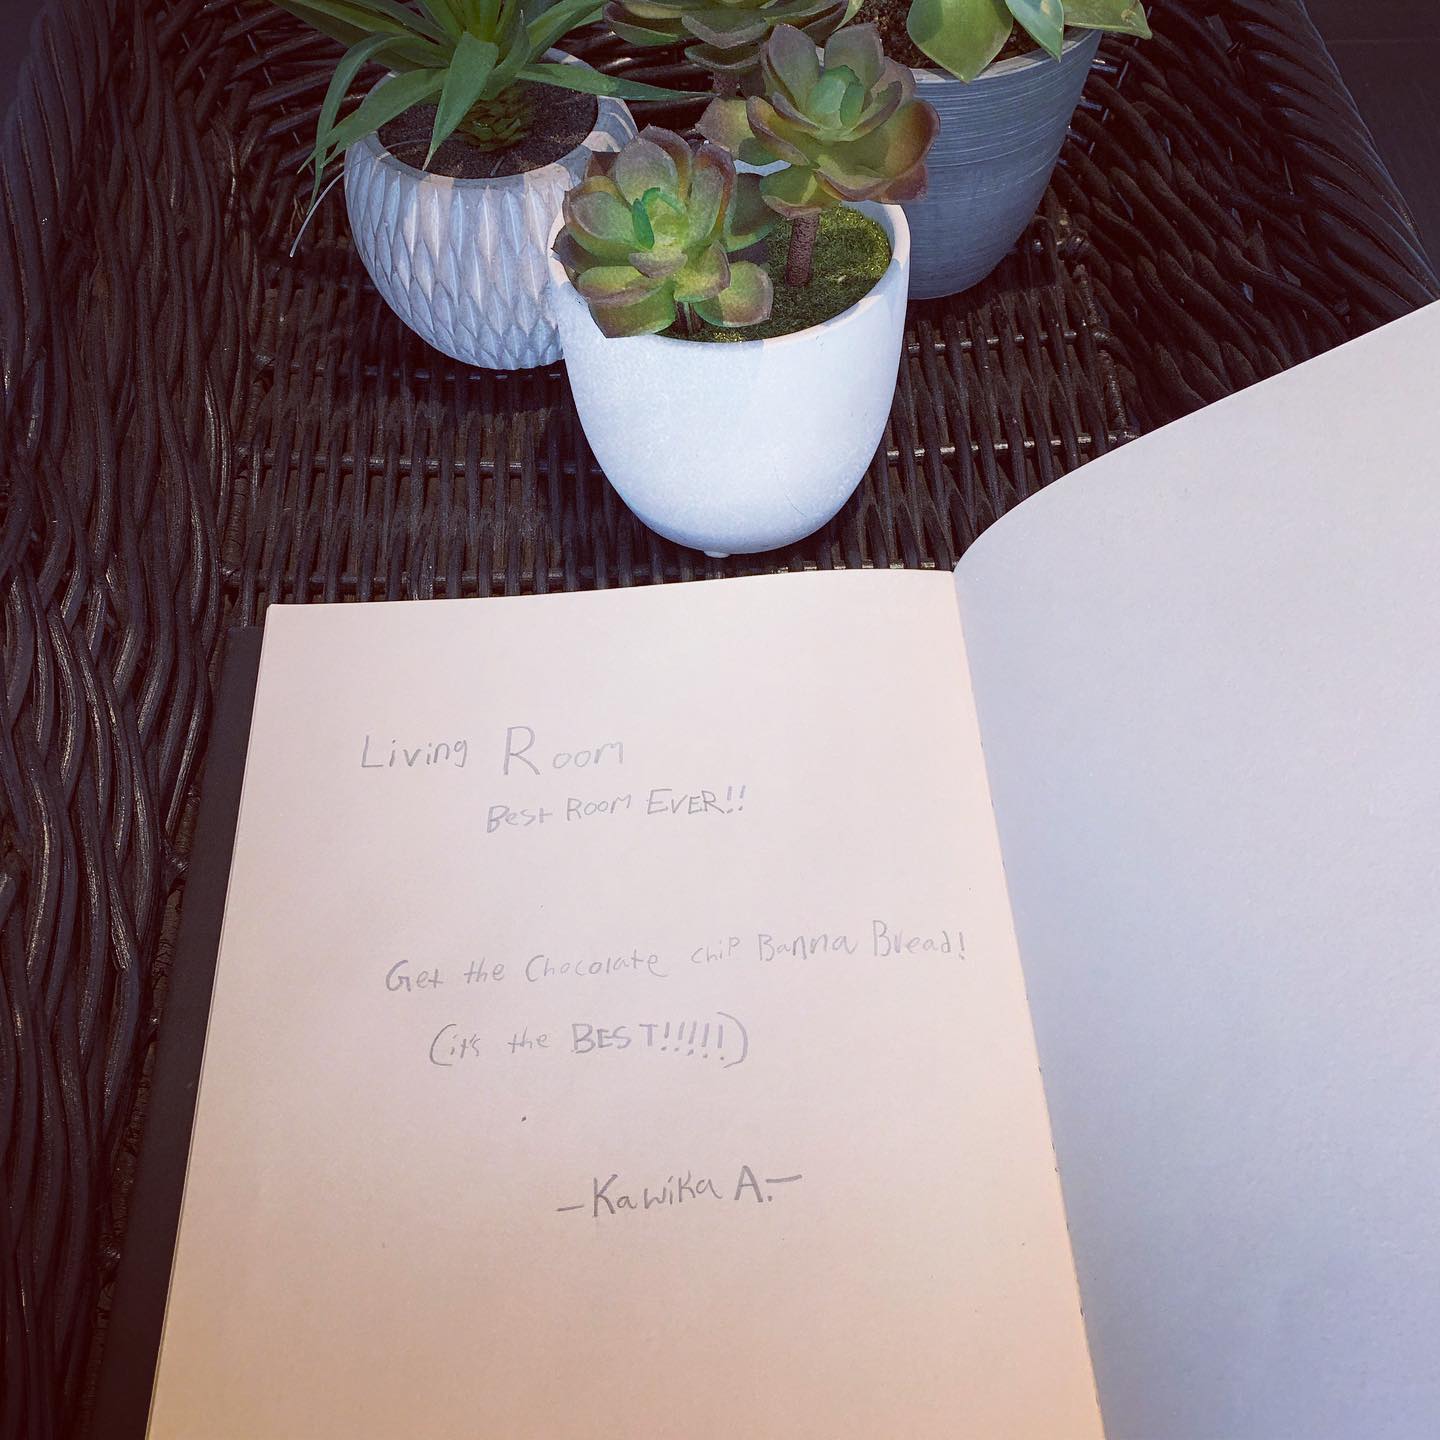 Living Room
Best Room EVER!!
Get the Chocolate chip Banna Bread!
(it's the BEST!!!!!)
-Kawika A.-